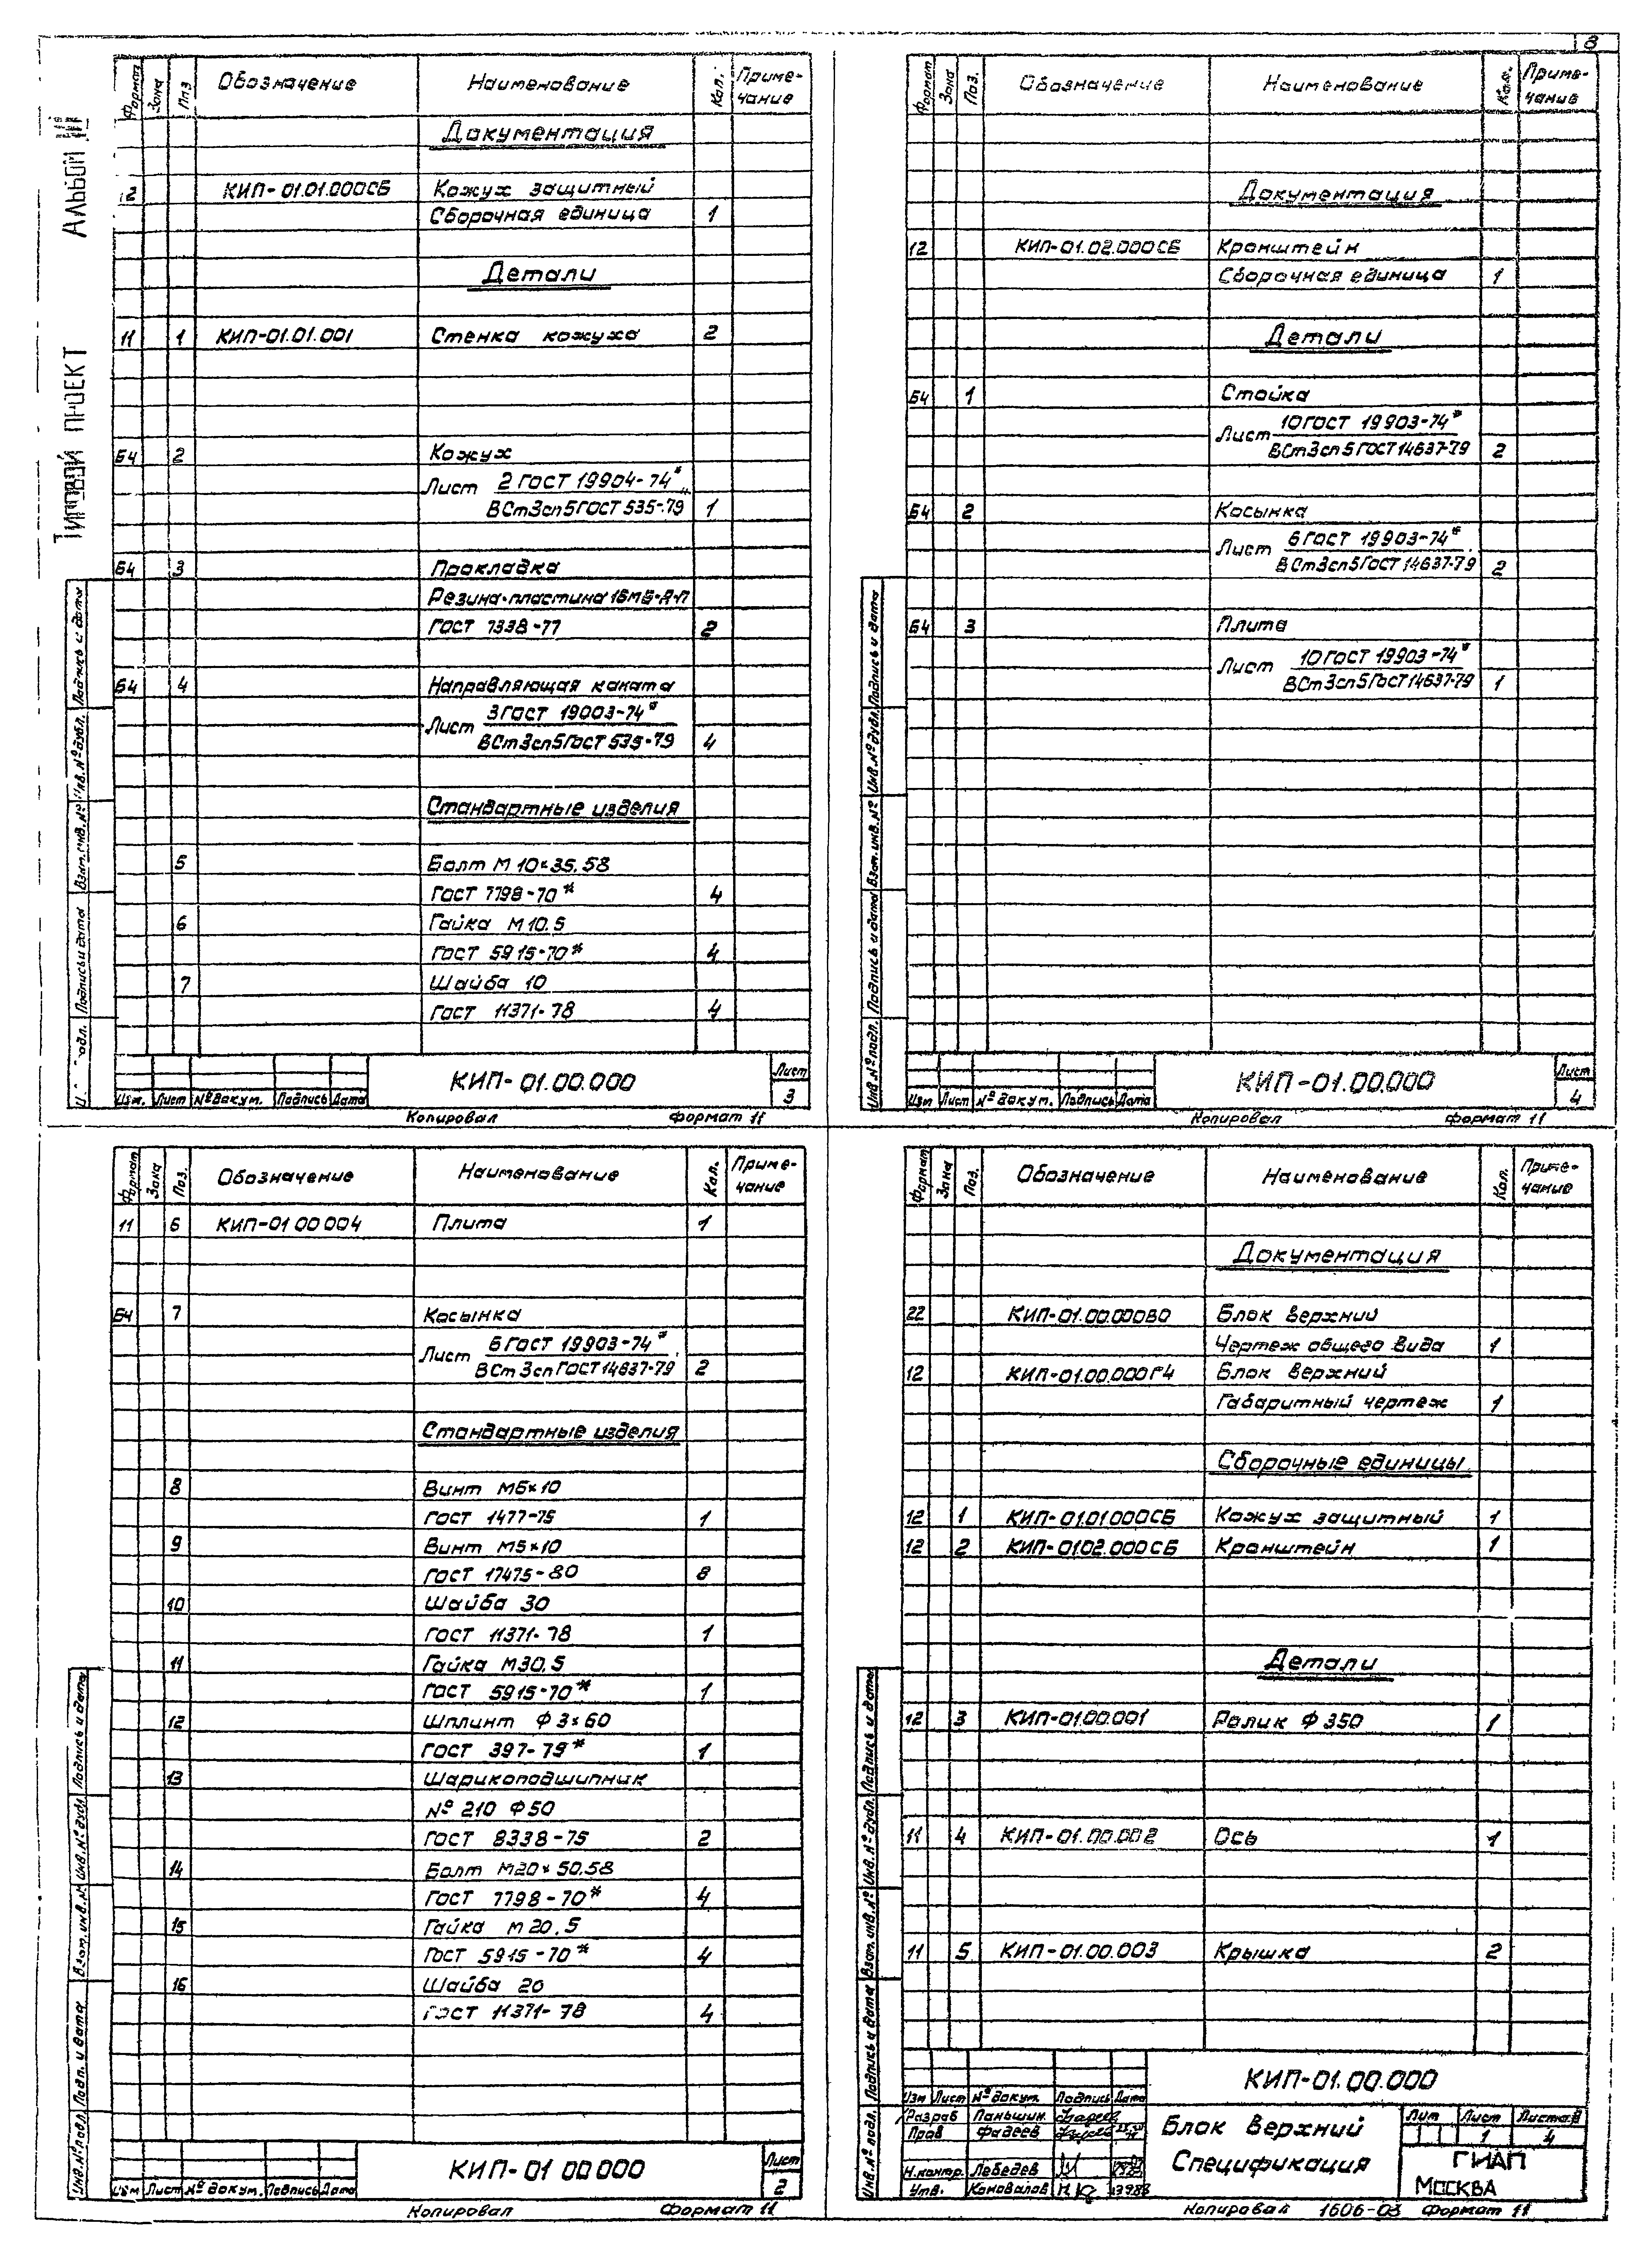 8
ТИПОВОЙ ПРОЕКТ АЛЬБОМ
Формат Зона Поз Обозначение Наименование Кол. Приме-
чание
Документация
12 КИП-01.01.000СБ Кожух защитный
Сборочная единица 1
Детали
11 1 КИП-01.01.001 Стенка кожуха 2
Б4 2 Кожух
Лист 2 ГОСТ 19904-74*
ВСт3сп5ГОСТ 535-79 1
Б4 3 Прокладка
Резина-пластина
ГОСТ 7338-77 2
Б4 4 Направляющая каната
Лист 3 ГОСТ 19003-74*
ВСт3сп5ГОСТ 535-79 4
Стандартные изделия
5 Болт М 10×35.58
ГОСТ 7798-70* 4
6 Гайка М10.5
ГОСТ 5915-70* 4
7 Шайба 10
ГОСТ 11371-78 4
КИП-01.00.000
Лист
3
Изм. Лист №докум. Подпись Дата
Копировал Формат 11
Подпись и дата
Инв.№дубл.
Взам.инв.№
Подпись и дата
Формат Зона Поз. Обозначение Наименование Кол. Приме-
чание
Документация
12 КИП-01.02.000СБ Кронштейн
Сборочная единица 1
Детали
Б4 1 Стойка
Лист 10ГОСТ 19903-74*
ВСт3сп5ГОСТ14637-79 2
Б4 2 Косынка
Лист 6ГОСТ 19903-74*
ВСт3сп5ГОСТ14637-79 2
Б4 3 Плита
Лист 10ГОСТ 19903-74*
ВСт3сп5ГОСТ14637-79 1
КИП-01.00.000
Лист
4
Изм Лист №докум. Подпись Дата
Копировал Формат 11
Подпись и дата
Инв.№дубл.
Взам.инв.№
Подпись и дата
Инв.№подл.
Формат Зона Поз. Обозначение Наименование Кол. Приме-
чание
11 6 КИП-01 00 004 Плита 1
Б4 7 Косынка
Лист 6ГОСТ 19903-74*
ВСт3спГОСТ14637-79 2
Стандартные изделия
8 Винт М6×10
ГОСТ 1477-75 1
9 Винт М5×10
ГОСТ 17475-80 8
10 Шайба 30
ГОСТ 11371-78 1
11 Гайка М30.5
ГОСТ 5915-70* 1
12 Шплинт Ф 3×60
ГОСТ 397-79* 1
13 Шарикоподшипник
№ 210 Ф50
ГОСТ 8338-75 2
14 Болт М20×50.58
ГОСТ 7798-70* 4
15 Гайка М 20.5
ГОСТ 5915-70* 4
16 Шайба 20
ГОСТ 11371-78 4
КИП-01 00 000
Лист
2
Изм Лист №докум. Подпись Дата
Копировал Формат 11
Подпись и дата
Инв.№дубл
Взам.инв.№
Подп. и дата
Инв.№подл
Формат Зона Поз. Обозначение Наименование Кол. Приме-
чание
Документация
22 КИП-01.00.000ВО Блок верхний
Чертеж общего вида 1
12 КИП-01.00.000ГЧ Блок верхний
Габаритный чертеж 1
Сборочные единицы
12 1 КИП-01.01000СБ Кожух защитный 1
12 2 КИП-0102.000СБ Кронштейн 1
Детали
12 3 КИП-01.00.001 Ролик Ф 350 1
11 4 КИП-01.00.002 Ось 1
11 5 КИП-01.00.003 Крышка 2
КИП-01.00.000
Изм Лист №докум. Подпись Дата
Разраб Паньшин
Пров Фадеев
Н.контр. Лебедев
Утв. Коновалов
Блок верхний
Спецификация
Лит Лист Листов
1 4
ГИАП
МОСКВА
Копировал 1606-03 Формат 11
Подпись и дата
Инв.№дубл.
Взам.инв.№
Подпись и дата
Инв.№подл.